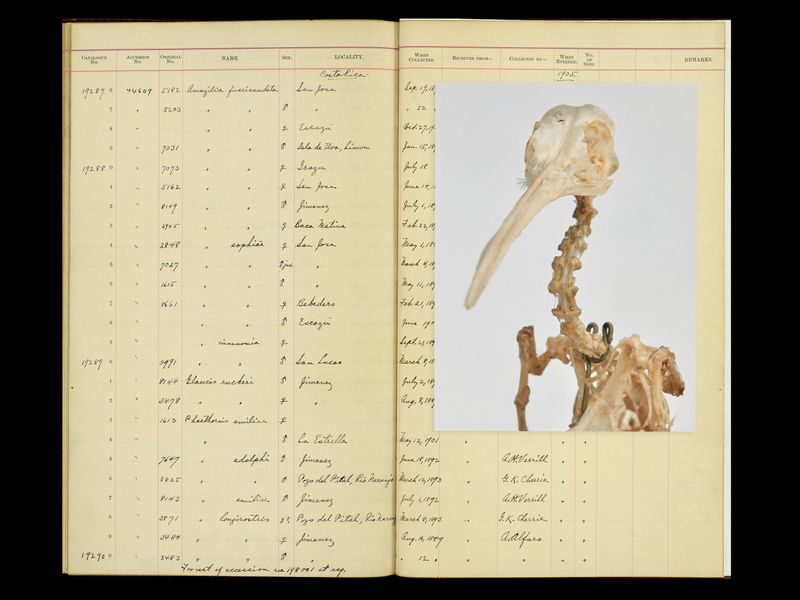 CATALOGUE No. ACCESSION No. ORIGINAL No. NAME. SEX. LOCALITY. WHEN COLLECTED. RECEIVED FROM— COLLECTED BY— WHEN ENTERED. No. OF SPEC. REMARKS.
Costa Rica. 1905.
19287 0 44609 5182 Amazilia fuscicaudata San Jose Sep. 17, 18
7 " 5203 " " ♂ " " 22
8 " " " ♀ Escazú Oct. 27, 19
9 " 7031 " " ♂ Isla de Uva, Limon Jan. 15, 18
19288 0 " 7073 " " ♀ Irazu July 18
1 " 5162 " " ♀ San Jose June 14, 1
2 " 8149 " " ♂ Jimenez July 1, 18
3 " 2945 " " ♀ Boca Matina Feb. 22, 18
4 " 2848 " sophiae ♀ San Jose May 1, 18
5 " 7027 " " ♂ juv. " March 4, 18
6 " 1615 " " ♂ " May 11, 18
7 " 4661 " " ♀ Bebedero Feb. 21, 18
8 " " " ♂ Escazú June 190
9 " " cinnamomia ♀ Sept. 21, 189
19289 0 " 2991 " " ♂ San Lucas March 8, 18
1 " 8144 Glaucis ruckeri ♂ Jimenez July 2, 18
2 " 3478 " " ♀ " Aug. 8, 189
3 " 1613 Phaethornis emiliae ♀
4 " " ♂ La Estrella May 12, 1901 " " "
5 " 7647 " adolphi ♂ Jimenez June 18, 1892 " A.H. Verrill " "
6 " 3825 " " ♂ Pozo del Pital, Rio Naranjo March 12, 1893 " G.K. Cherrie " "
7 " 8143 " emiliae ♂ Jimenez July 1, 1892 " A.H. Verrill " "
8 " 3871 " longirostris Pozo del Pital, Rio Naranj March 8, 1893 " G.K. Cherrie " "
9 " 3480 " " ♀ Jimenez Aug. 10, 1889 " A. Alfaro " "
19290 0 " 3483 " " ♂ " " 12 " " " " "
For rest of accession see 198001 et seq.